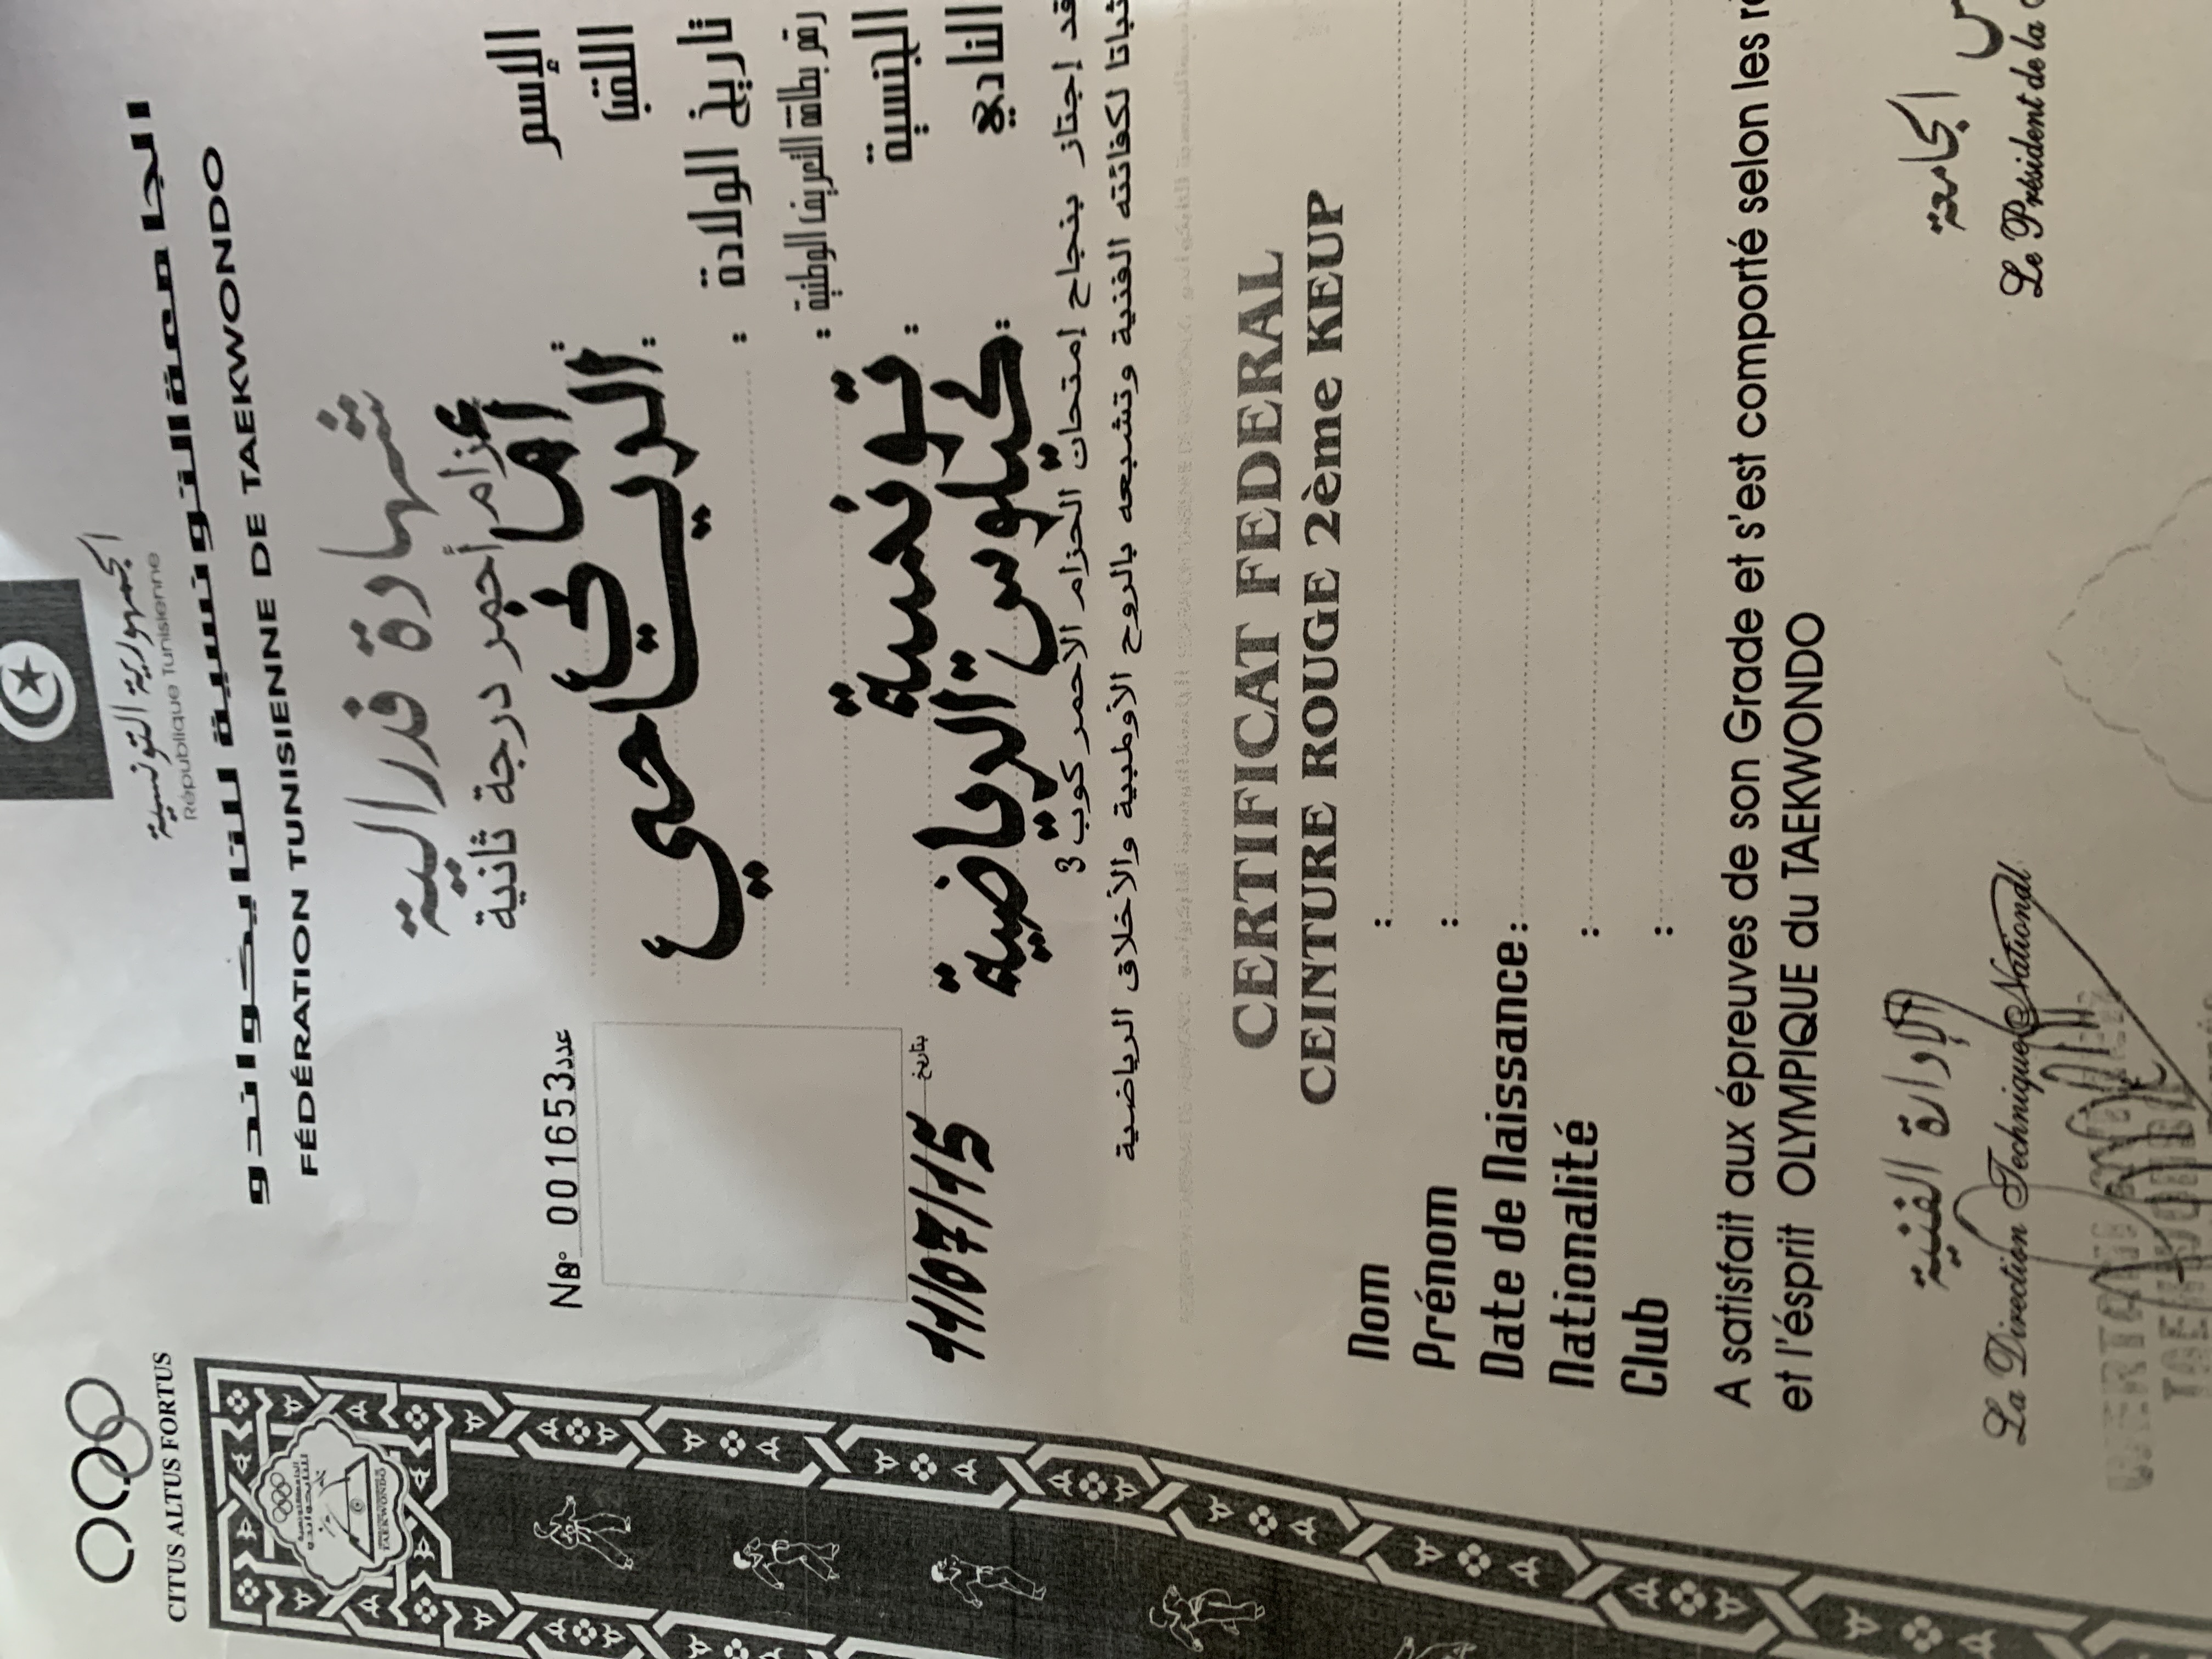 الجمهورية التونسية
République Tunisienne
CITUS ALTUS FORTUS
الجامعة التونسية للتايكواندو
FÉDÉRATION TUNISIENNE DE TAEKWONDO
شهادة فدرالية
حزام أحمر درجة ثانية
No 001653 عدد
الإسم : أماني
اللقب : الرياحي
تاريخ الولادة :
رقم بطاقة التعريف الوطنية :
الجنسية : تونسية
النادي : الرياضية
بتاريخ 11/07/15
قد إجتاز بنجاح إمتحان الحزام الأحمر كوب 3
لكفائته الفنية وتشبعه بالروح الأولمبية والأخلاق الرياضية
CERTIFICAT FEDERAL
CEINTURE ROUGE 2ème KEUP
Nom :
Prénom :
Date de Naissance:
Nationalité :
Club :
A satisfait aux épreuves de son Grade et s'est comporté selon les
et l'ésprit OLYMPIQUE du TAEKWONDO
الإدارة الفنية
الجامعة
La Direction Technique National
Le Président de la